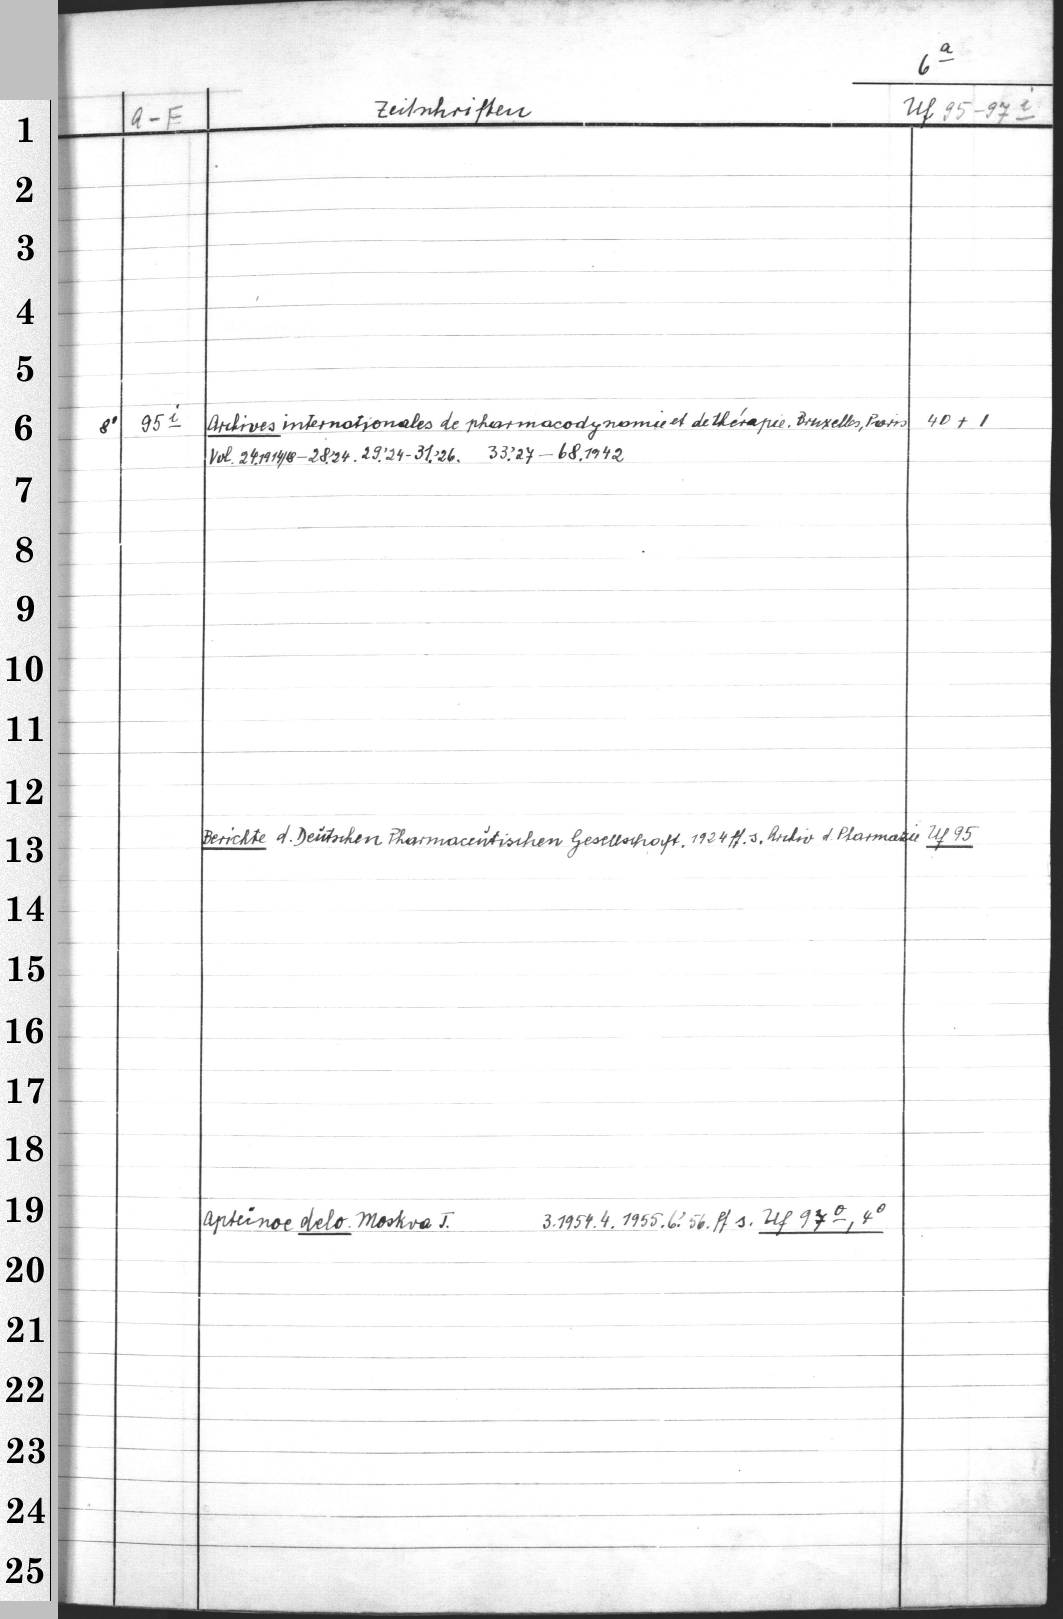 6 a
a - F Zeitschriften Uf 95-97 i
1
2
3
4
5
6 8° 95 i Archives internationales de pharmacodynamie et de thérapie. Bruxelles, Paris 40 + 1
Vol. 24.1914/18-28.'24. 29.'24-31.'26. 33.'27-68.1942
7
8
9
10
11
12
13 Berichte d. Deutschen Pharmaceutischen Gesellschaft. 1924 ff. s. Archiv d. Pharmazie Uf 95
14
15
16
17
18
19 Aptečnoe delo. Moskva T. 3.1954.4.1955.6.'56. ff s. Uf 97 o, 4°
20
21
22
23
24
25